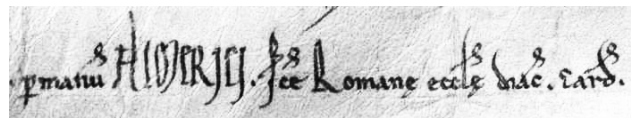 . p manuſ HAIMERICI . Sce Romanę eccłę diac̄ . card̄ .